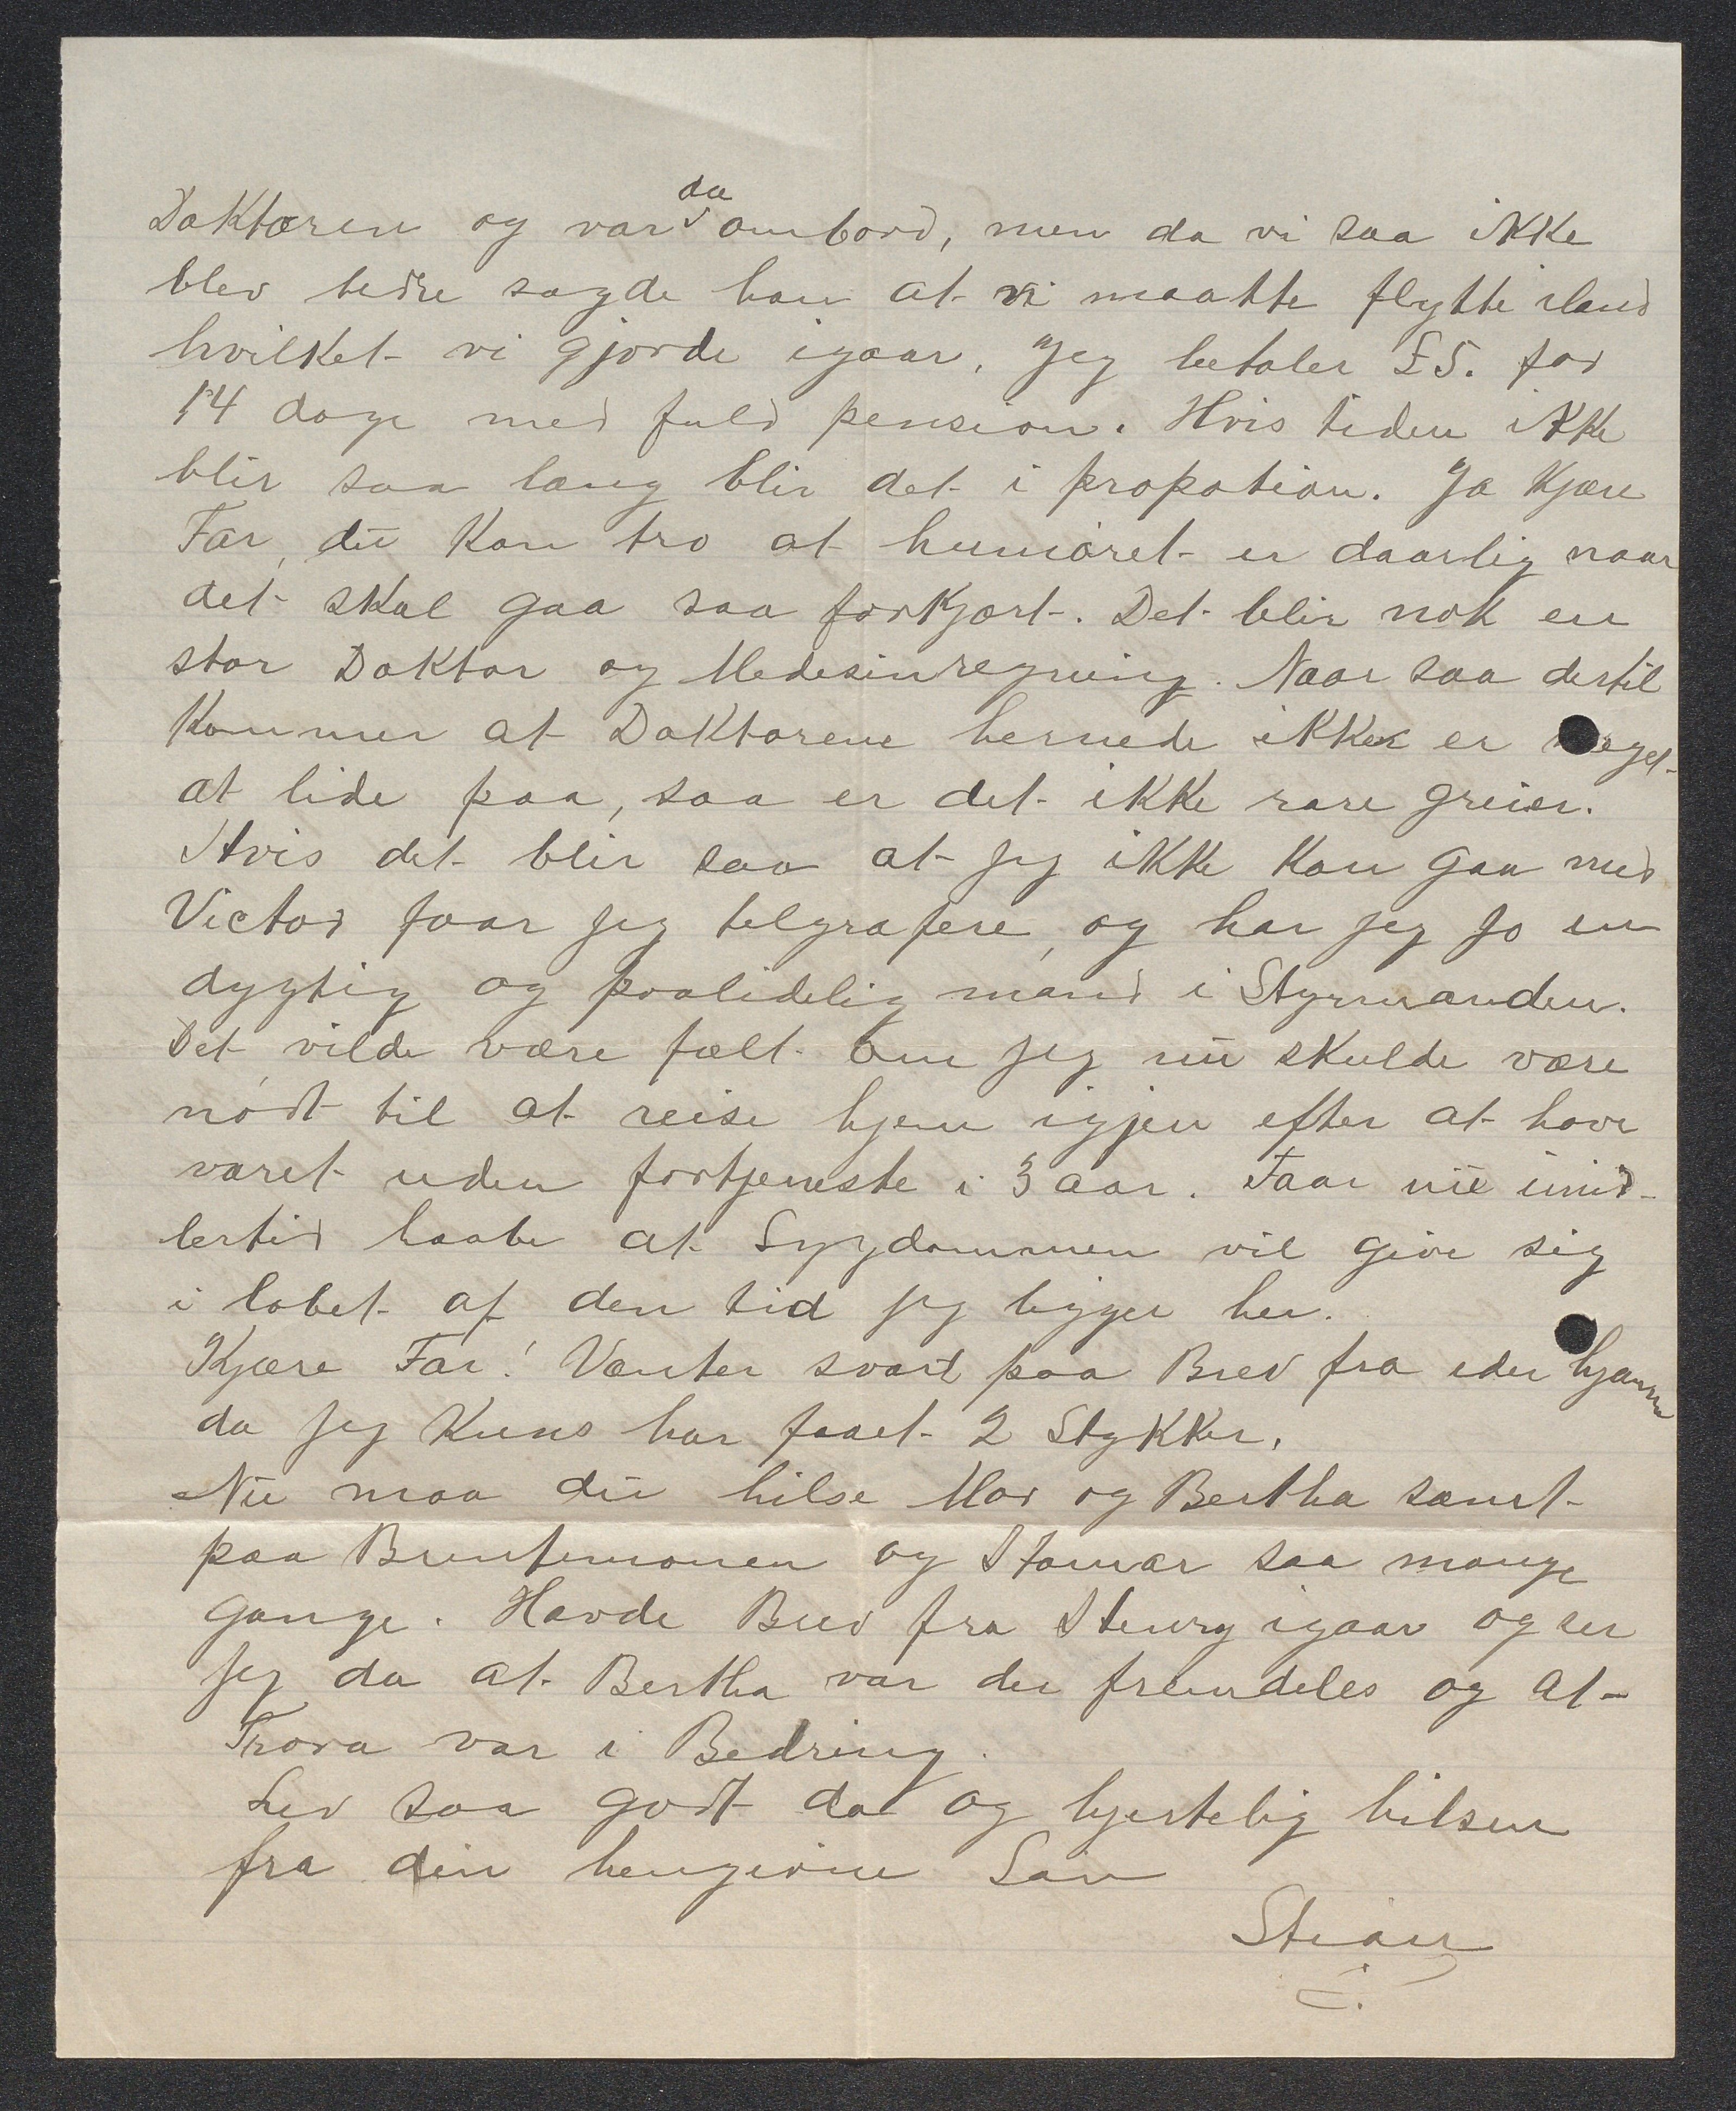 Doktoren og var da ombord, men da vi saa ikke
blev bedre sagde han at vi maatte flytte iland
hvilket vi gjorde igaar. Jeg betaler £5. for
14 dage med fuld pension. Hvis tiden ikke
blir saa lang blir det i propotion. Ja Kjære
Far, du kan tro at humøret er daarlig naar
det skal gaa saa forkjært. Det blir nok en
stor Doktor og Medesinregning. Naar saa dertil
kommer at Doktorene hernede ikke er meget
at lide paa, saa er det ikke rare greier.
Hvis det blir saa at jeg ikke kan gaa med
Victor faar jeg telgrafere, og har jeg jo en
dygtig og paalidelig mand i Styrmanden.
Det vilde være fælt om jeg nu skulde være
nødt til at reise hjem igjen efter at have
været uden fortjeneste i 3 aar. Faar nu imid-
lertid haabe at Sygdommen vil give sig
i løbet af den tid jeg ligger her.
Kjære Far! Venter svart paa Brev fra eder hjemme
da jeg kuns har faaet 2 Stykker.
Nu maa du hilse Mor og Bertha samt
paa og saa mange
gange. Havde Brev fra igaar og ser
jeg da at Bertha var der fremdeles og at
var i Bedring.
Lev saa godt da og hjertelig hilsen
fra din hengivne Søn
Stian